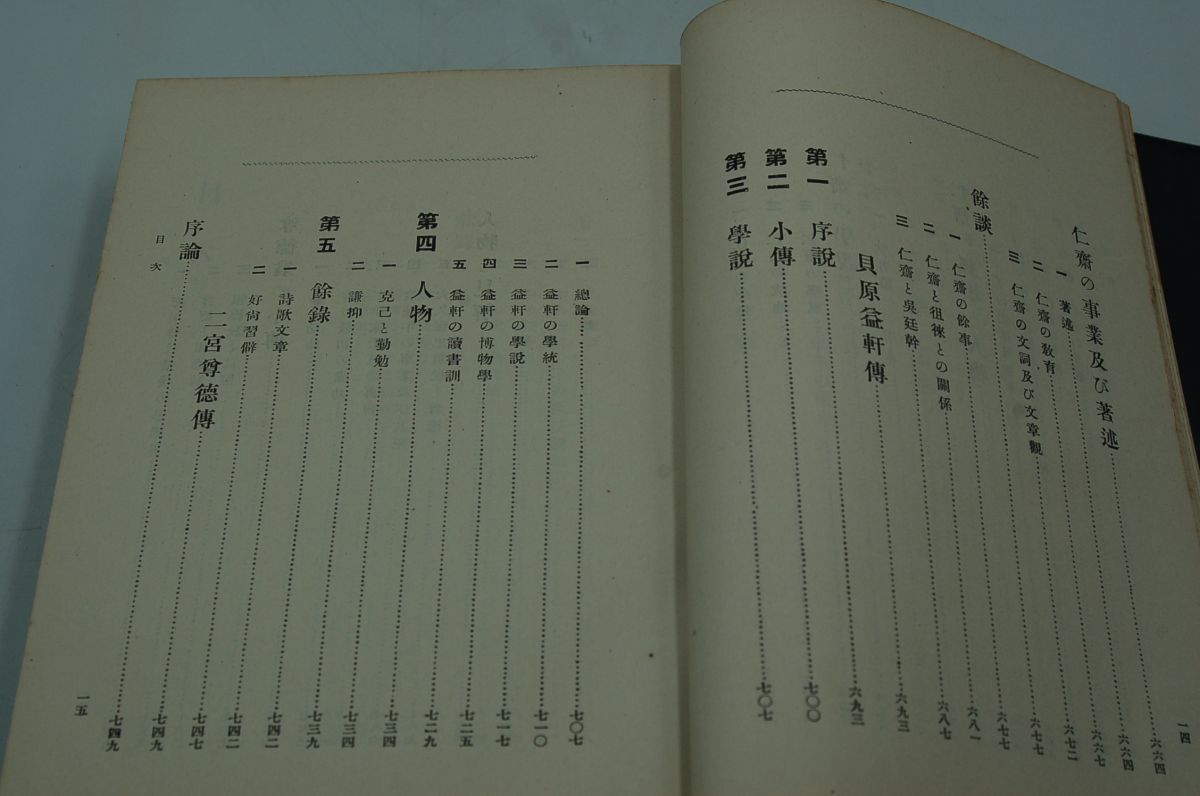 仁齋の事業及び著述……六六四
一 著述……六六四
二 仁齋の敎育……六六七
三 仁齋の文詞及び文章觀……六七二
餘談……六七七
一 仁齋の餘事……六七七
二 仁齋と徂徠との關係……六八一
三 仁齋と吳廷幹……六八七
貝原益軒傳……六九三
第一 序說……六九三
第二 小傳……七〇〇
第三 學說……七〇七
一四
一 總論……七〇七
二 益軒の學統……七一〇
三 益軒の學說……七一七
四 益軒の博物學……七二五
五 益軒の讀書訓……七二九
第四 人物……七三四
一 克己と勤勉……七三四
二 謙抑……七三九
第五 餘錄……七四二
一 詩歌文章……七四二
二 好尙習癖……七四七
二宮尊德傳……七四九
序論……七四九
目次
一五